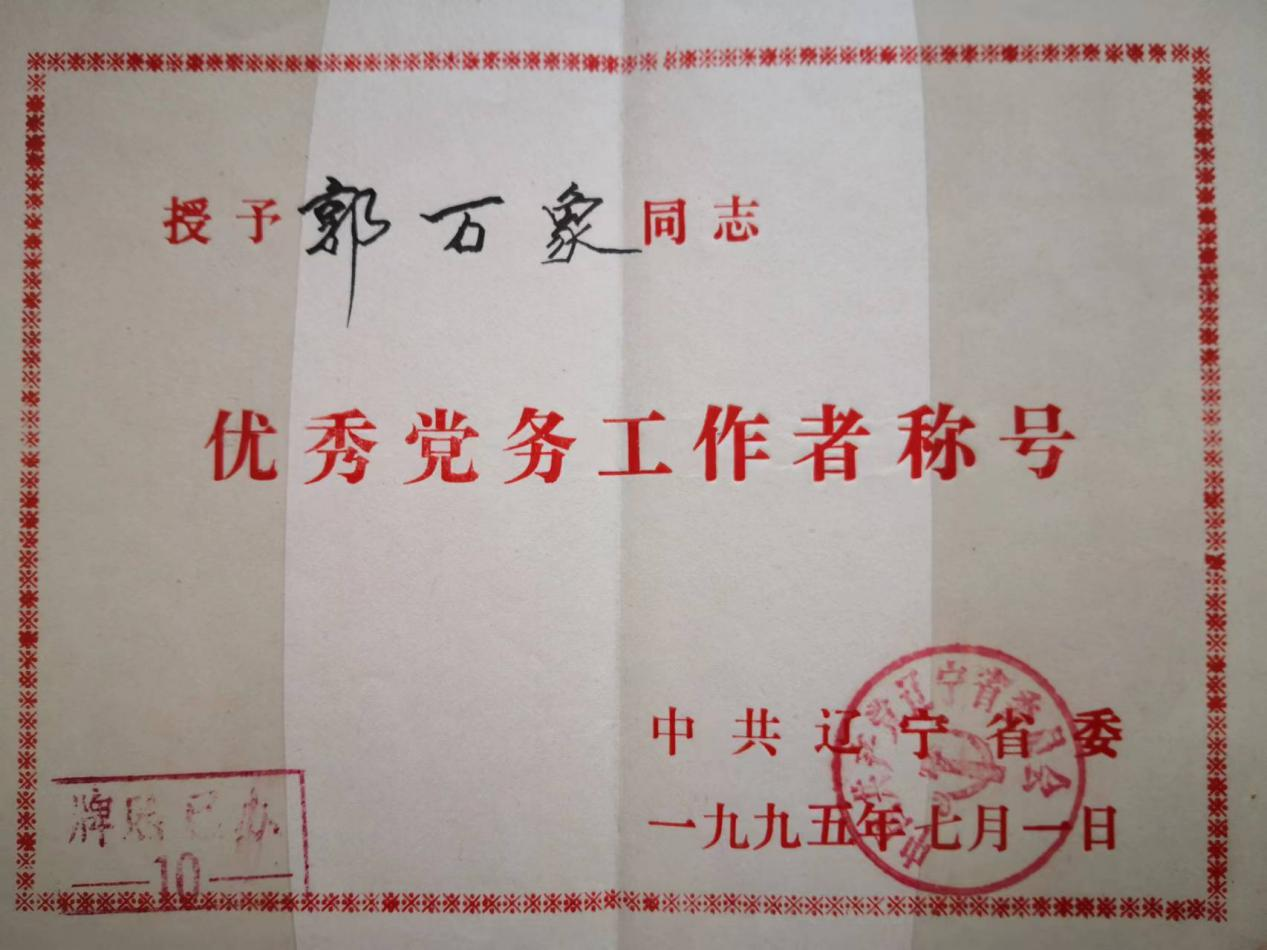 授予郭万象同志
优秀党务工作者称号
中共辽宁省委
一九九五年七月一日
中国共产党辽宁省委员会
牌贴已办
10